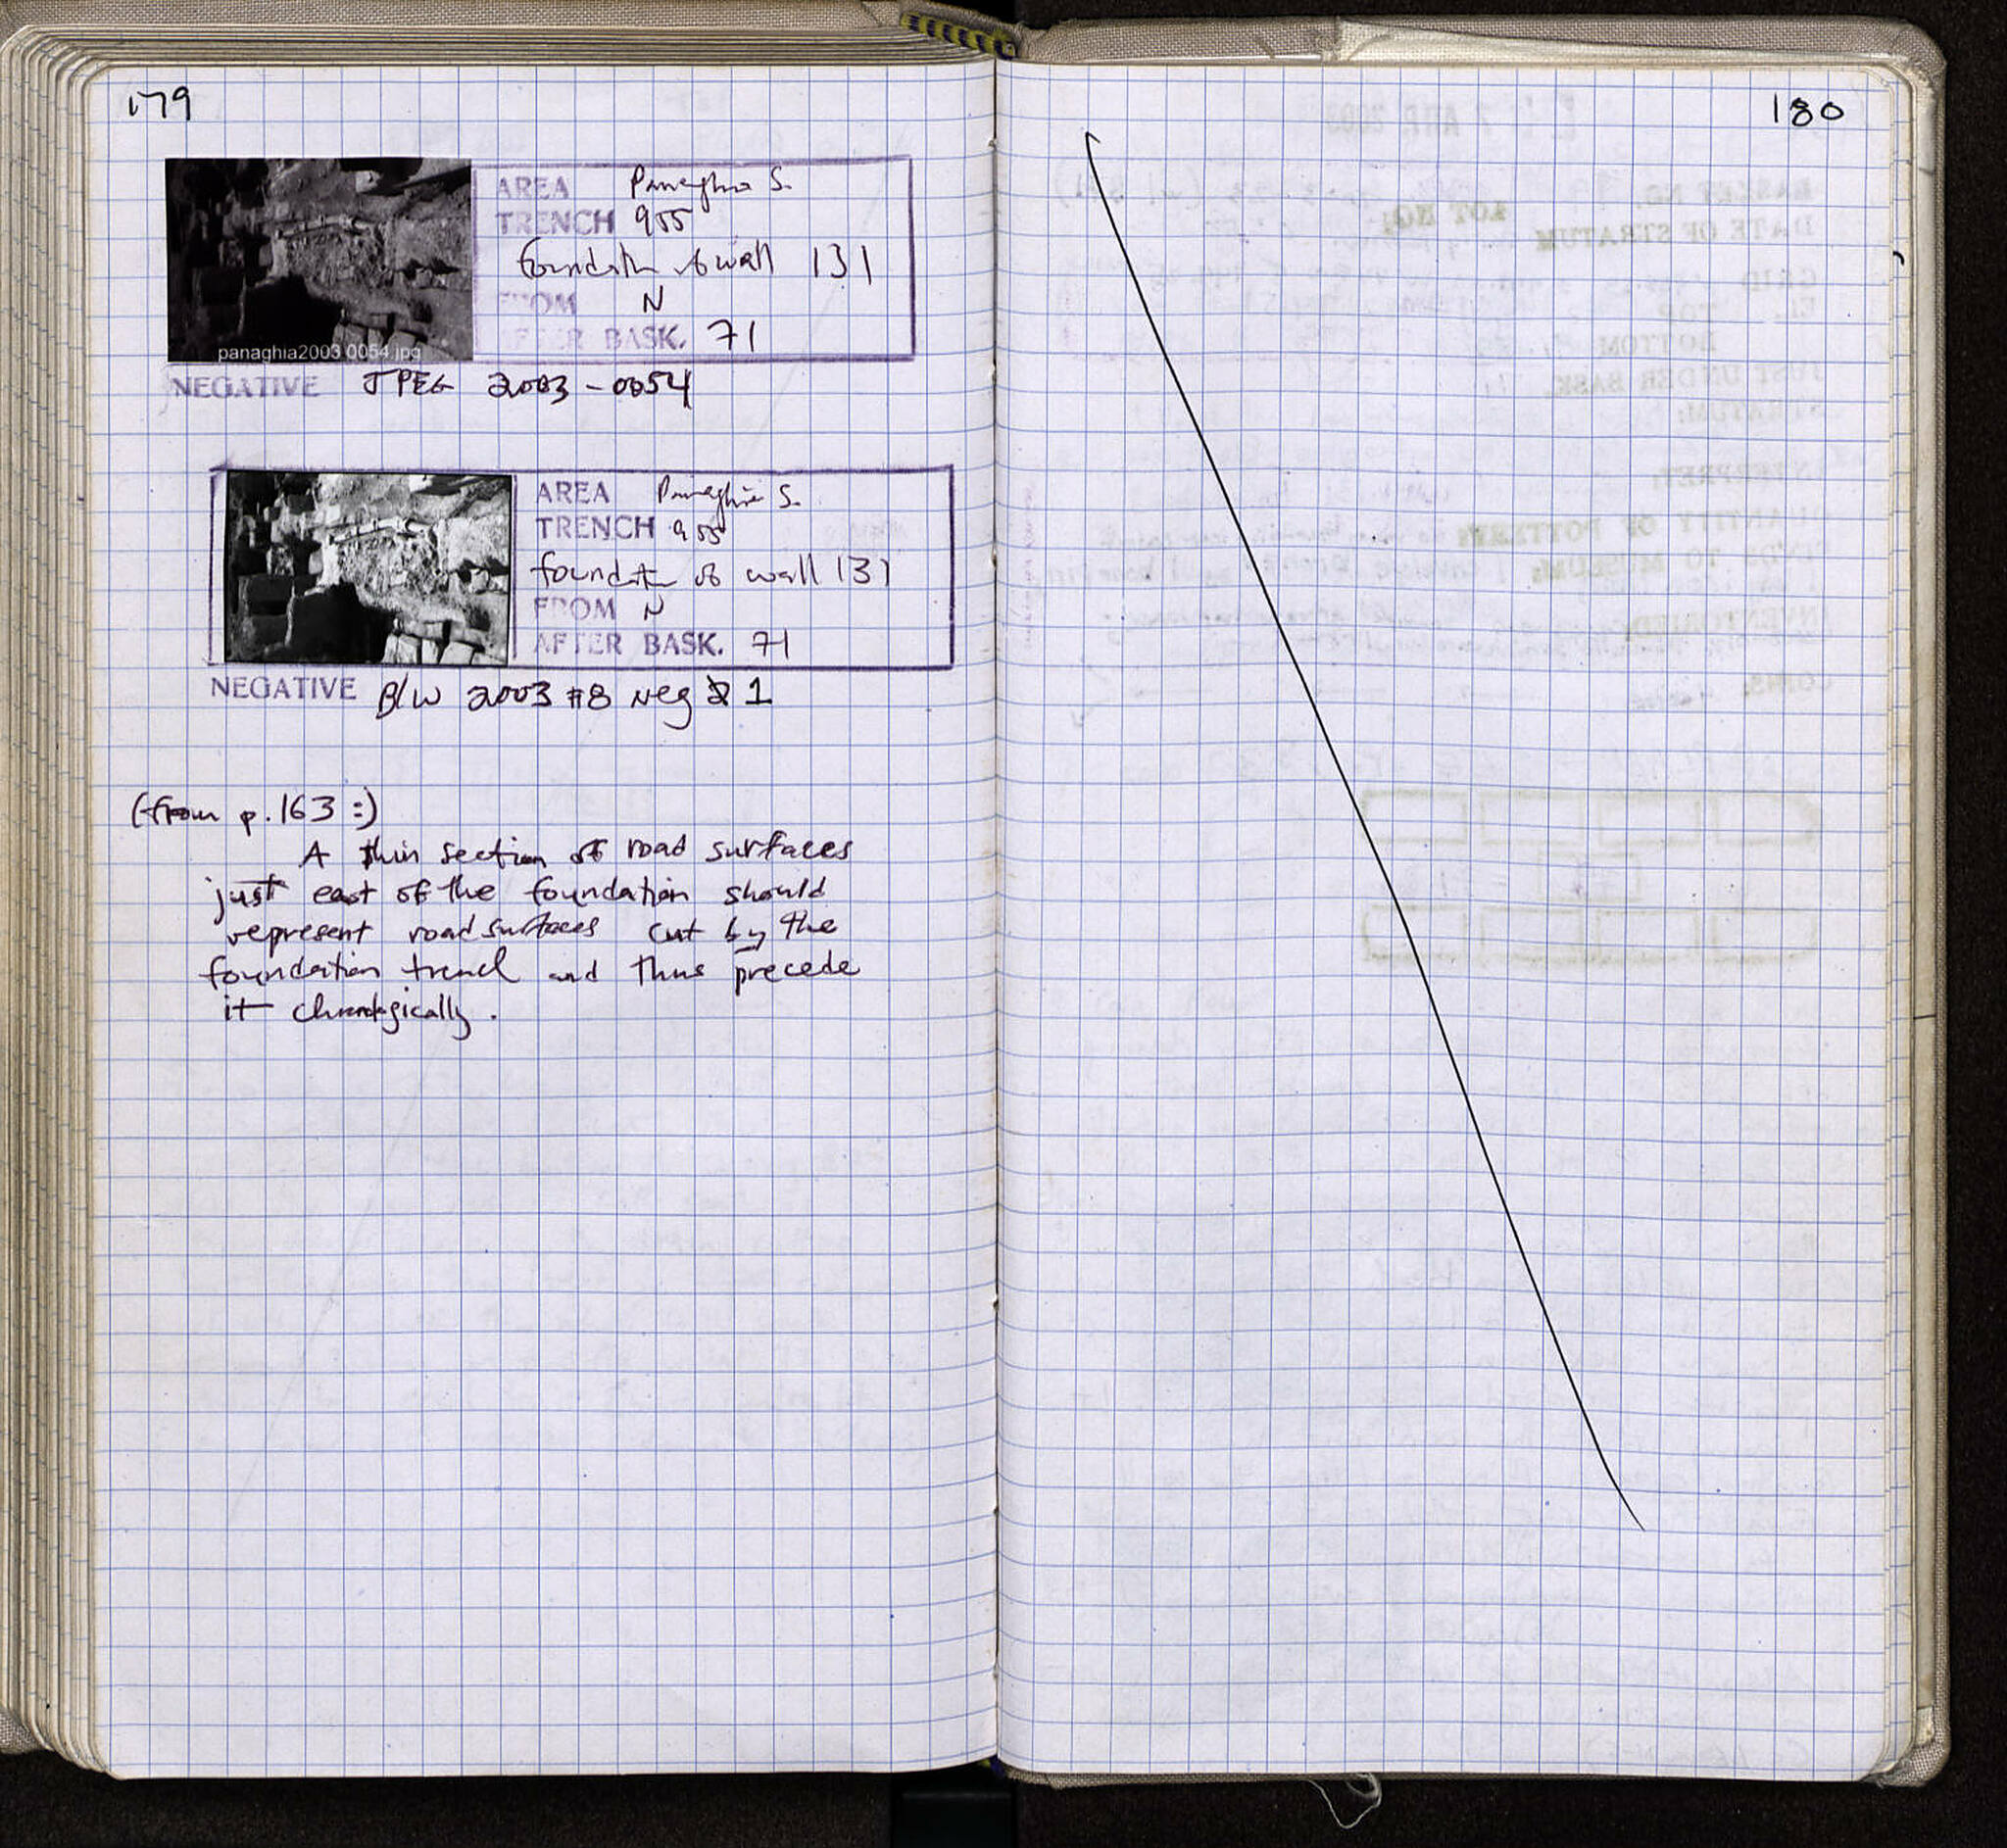 179
AREA Panaghia S.
TRENCH 955
foundation of wall 131
FROM N
AFTER BASK. 71
panaghia2003 0054.jpg
NEGATIVE JPEG 2003-0054
AREA Panaghia S.
TRENCH 955
foundation of wall 131
FROM N
AFTER BASK. 71
NEGATIVE B/W 2003 #8 Neg 1
(from p. 163 :)
A thin section of road surfaces
just east of the foundation should
represent road surfaces cut by the
foundation trench and thus precede
it chronologically.
180